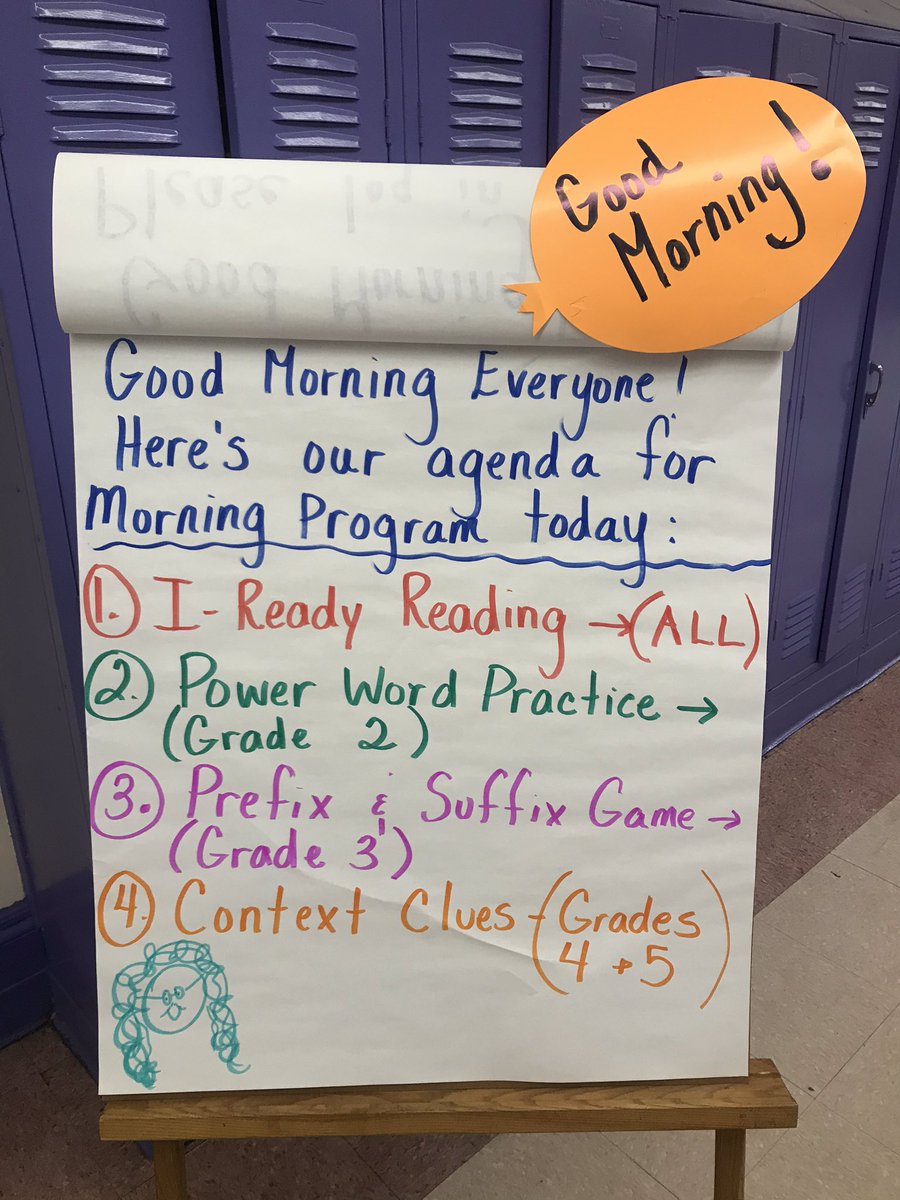 Please log in
Good Morning
Good
Morning!
Good Morning Everyone!
Here's our agenda for
Morning Program today:
1. I-Ready Reading → (ALL)
2. Power Word Practice →
(Grade 2)
3. Prefix & Suffix Game →
(Grade 3)
4. Context Clues - (Grades
4 + 5)